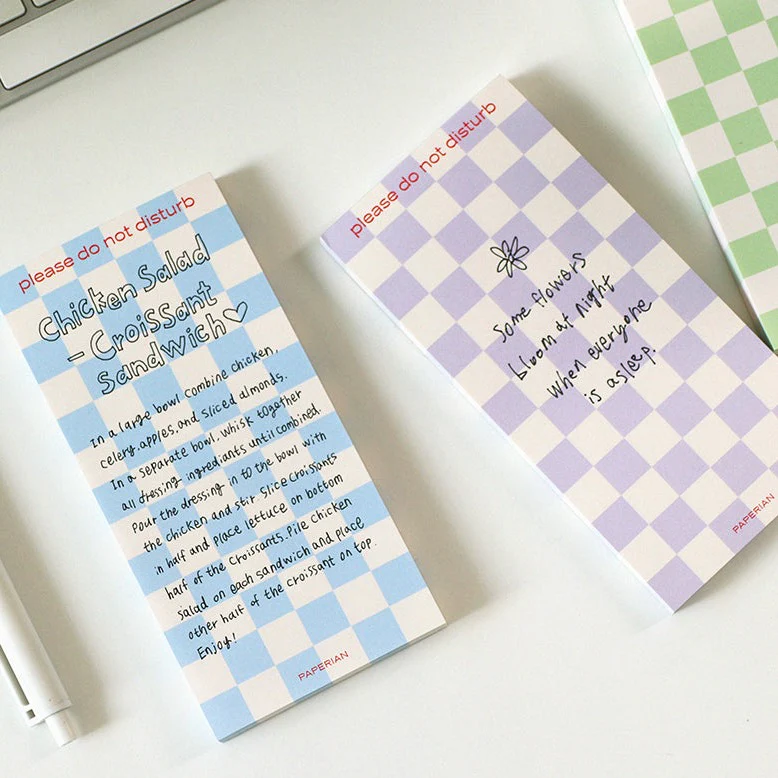 please do not disturb
Chicken Salad
- Croissant
Sandwich♡
In a large bowl combine chicken,
celery, apples, and sliced almonds.
In a separate bowl, whisk together
all dressing ingrediants until combined.
Pour the dressing in to the bowl with
the chicken and stir. Slice Croissants
in half and place lettuce on bottom
half of the croissants. Pile Chicken
salad on each sandwich and place
other half of the croissant on top.
Enjoy!
PAPERIAN
please do not disturb
Some flowers
bloom at night
When everyone
is asleep.
PAPERIAN